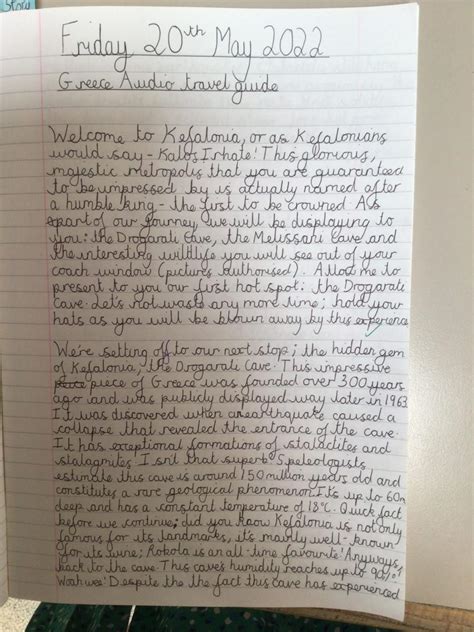 Story
Friday 20th May 2022
Greece Audio travel guide
Welcome to Kefalonia, or as Kefalonians
would say - Kalos Irhate! This glorious,
majestic metropolis that you are guaranteed
to be impressed by is actually named after
a humble king - the first to be crowned. As
apart of our journey, we will be displaying to
you: the Drogarati Cave, the Melissani Cave and
the interesting wildlife you will see out of your
coach window (pictures authorised). Allow me to
present to you our first hot spot: the Drogarati
Cave. Let's not waste any more time; hold your
hats as you will be blown away by this experience
We're setting off to our next stop; the hidden gem
of Kefalonia, the Drogarati Cave. This impressive
piece of Greece was founded over 300 years
ago and was publicly displayed way later in 1963.
It was discovered when an earthquake caused a
collapse that revealed the entrance of the cave.
It has exceptional formations of stalactites and
stalagmites! Isn't that superb? Speleologists
estimate this cave is around 150 million years old and
constitutes a rare geological phenomenon. It's up to 60m
deep and has a constant temperature of 18°C. Quick fact
before we continue; did you know Kefalonia is not only
famous for its landmarks, it's mainly well-known
for its wine; Robola is an all-time favourite! Anyways,
back to the cave. This caves humidity reaches up to 90%!
Woah wee! Despite the the fact this cave has experienced